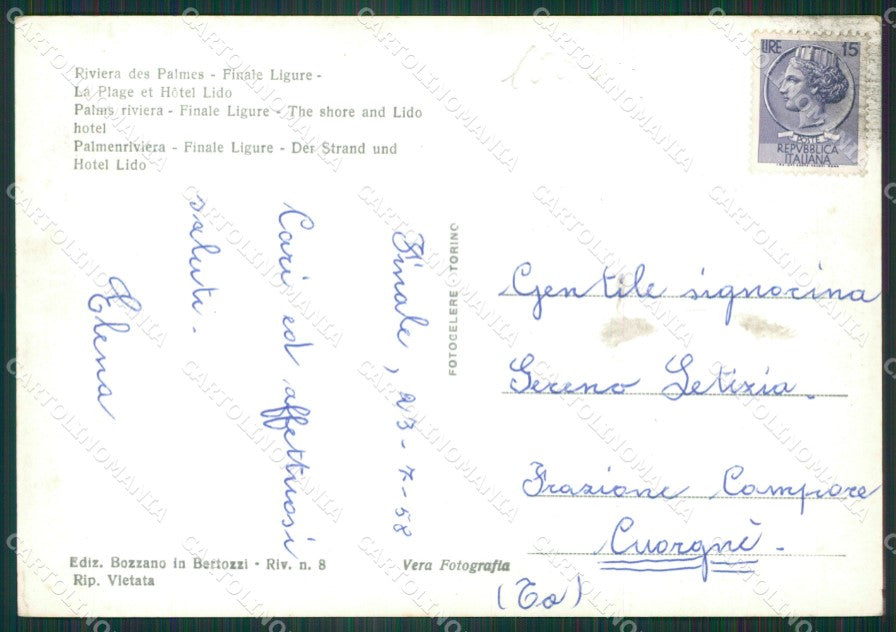 Riviera des Palmes - Finale Ligure -
La Plage et Hôtel Lido
Palms riviera - Finale Ligure - The shore and Lido
hotel
Palmenriviera - Finale Ligure - Der Strand und
Hotel Lido
LIRE 15
POSTE
REPVBBLICA
ITALIANA
Finale, 23-7-58
Cari ed affettuosi
saluti.
Elena
FOTOCELERE TORINO
Gentile signorina
Gereno Letizia.
Frazione Campore
Cuorgnè -
(To)
Ediz. Bozzano in Bertozzi - Riv. n. 8
Rip. Vietata
Vera Fotografia
CARTOLINOMANIA